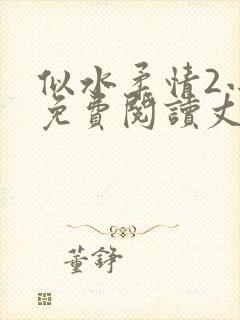 似水柔情2.
免費閱讀丈
董錚